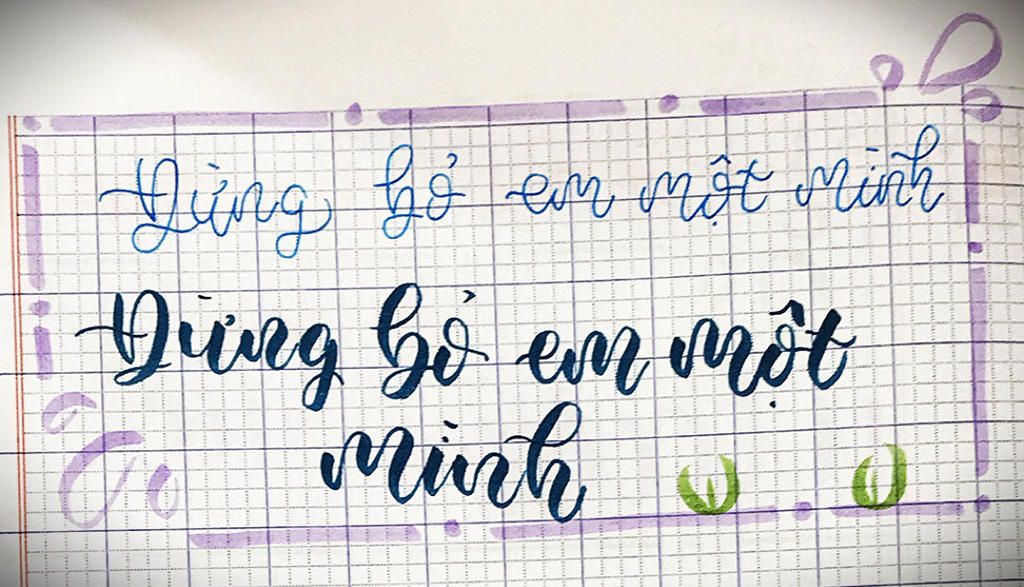 Đừng bỏ em một mình
Đừng bỏ em một
mình